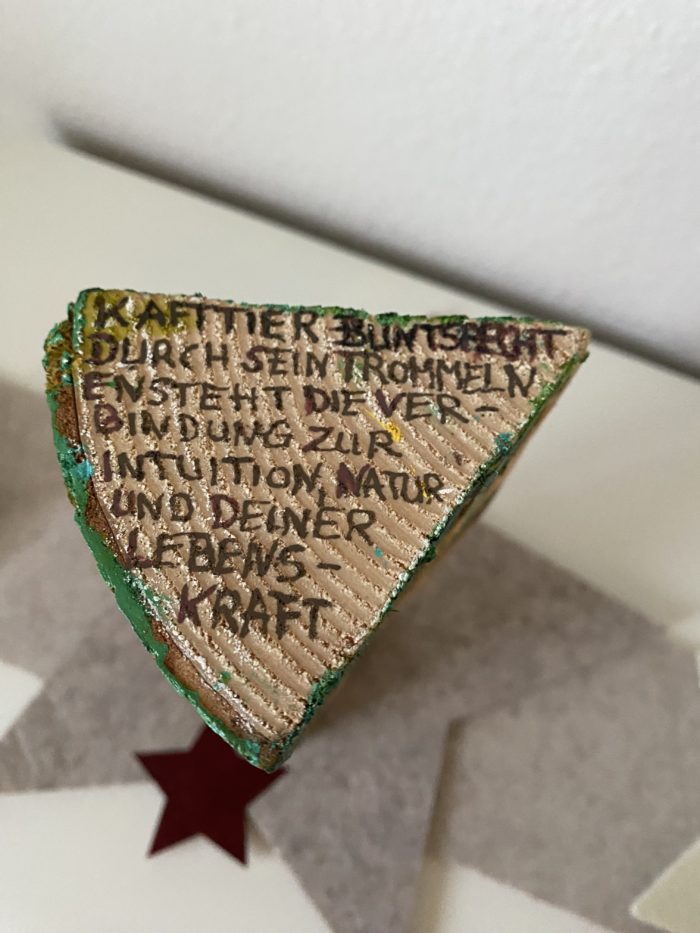 KAFTTIER BUNTSPECHT
DURCH SEIN TROMMELN
ENSTEHT DIE VER-
BINDUNG ZUR
INTUITION, NATUR
UND DEINER
LEBENS-
KRAFT